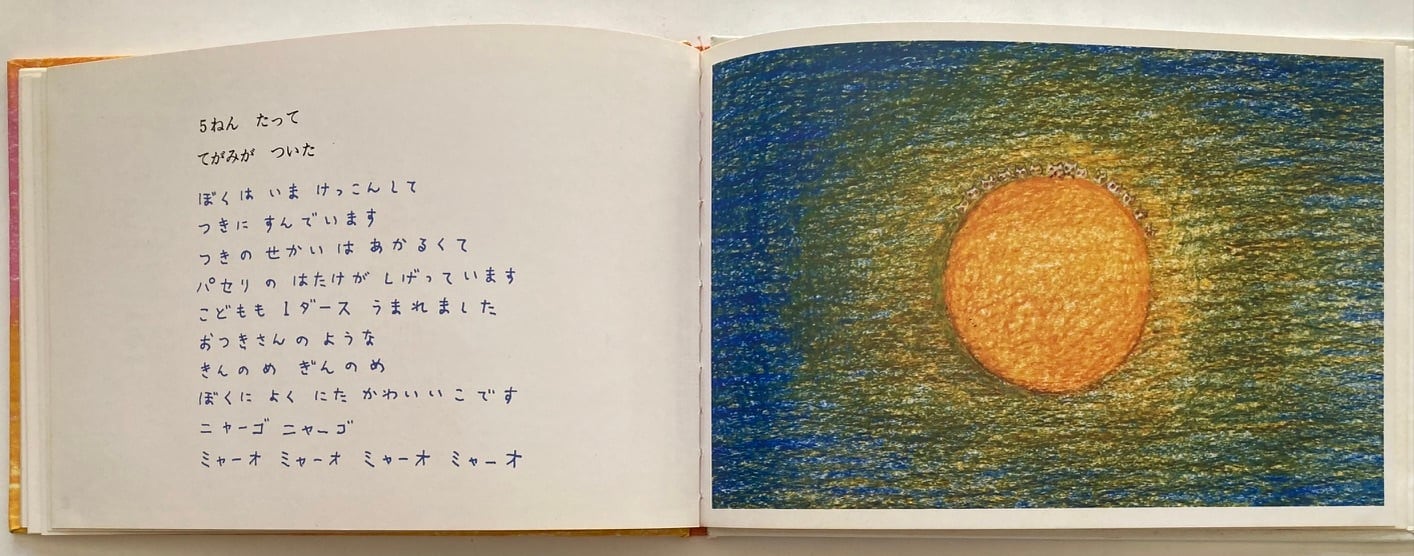 5ねん　たって
てがみが　ついた
ぼくは　いま　けっこんして
つきに　すんでいます
つきの　せかいは　あかるくて
パセリの　はたけが　しげっています
こどもも　1ダース　うまれました
おつきさんの　ような
きんのめ　ぎんのめ
ぼくに　よく　にた　かわいいこです
ニャーゴ　ニャーゴ
ミャーオ　ミャーオ　ミャーオ　ミャーオ